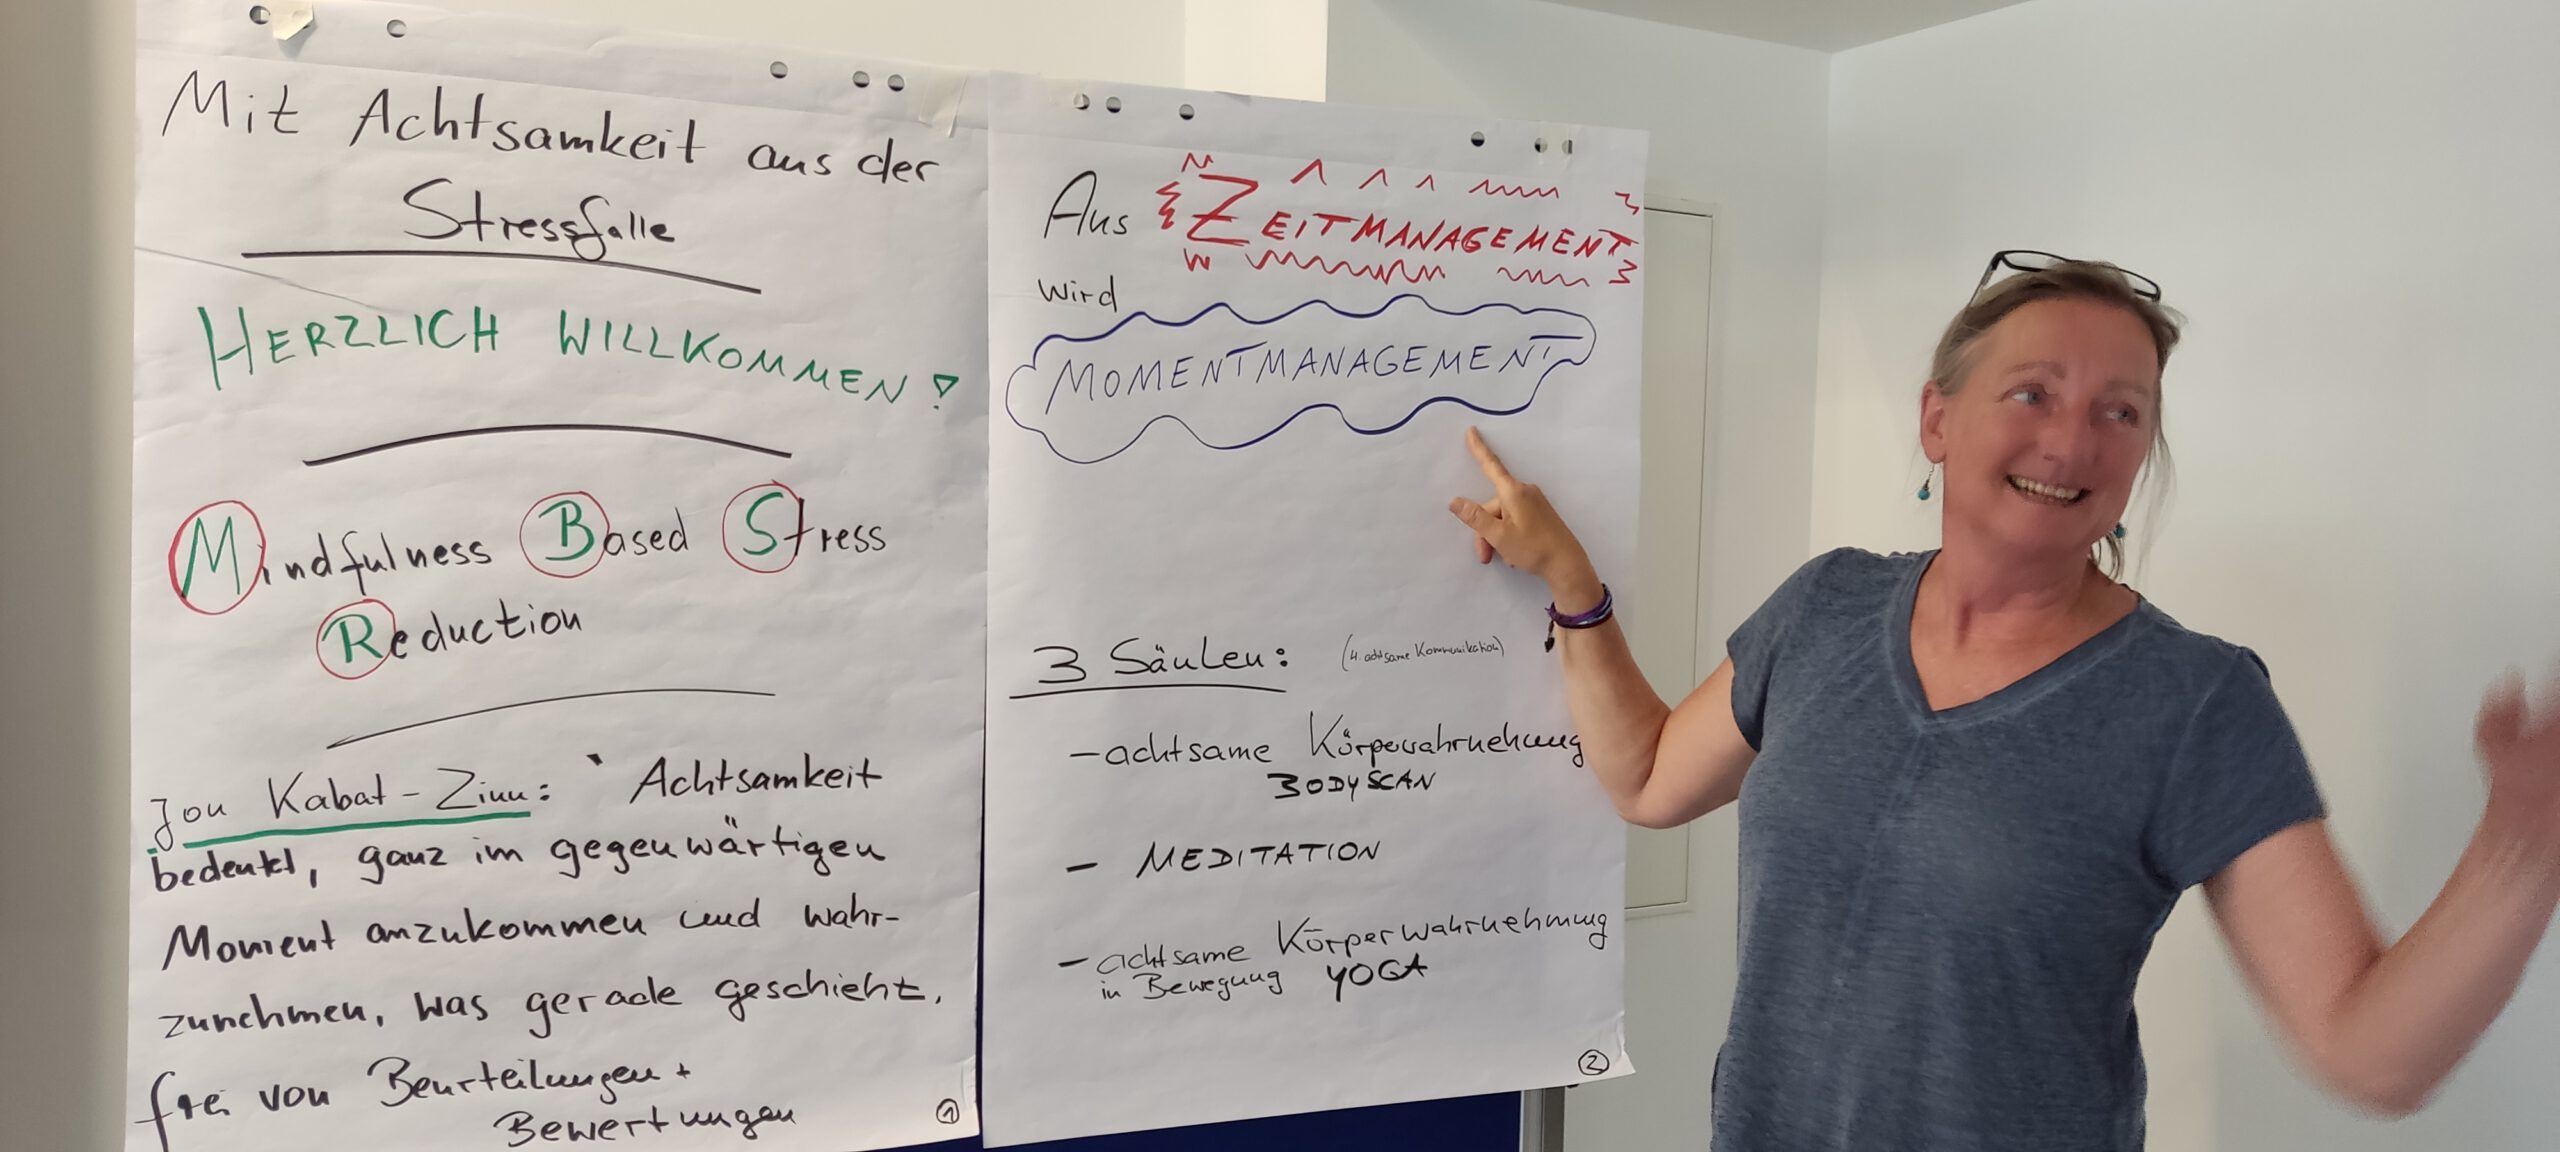 Mit Achtsamkeit aus der
Stressfalle
HERZLICH WILLKOMMEN!
Mindfulness Based Stress
Reduction
Jon Kabat-Zinn: Achtsamkeit
bedeutet, ganz im gegenwärtigen
Moment anzukommen und wahr-
zunehmen, was gerade geschieht,
frei von Beurteilungen +
Bewertungen
1
Aus ZEITMANAGEMENT
wird
MOMENTMANAGEMENT
3 Säulen: (4. achtsame Kommunikation)
- achtsame Körperwahrnehmung
BODYSCAN
- MEDITATION
- achtsame Körperwahrnehmung
in Bewegung YOGA
2